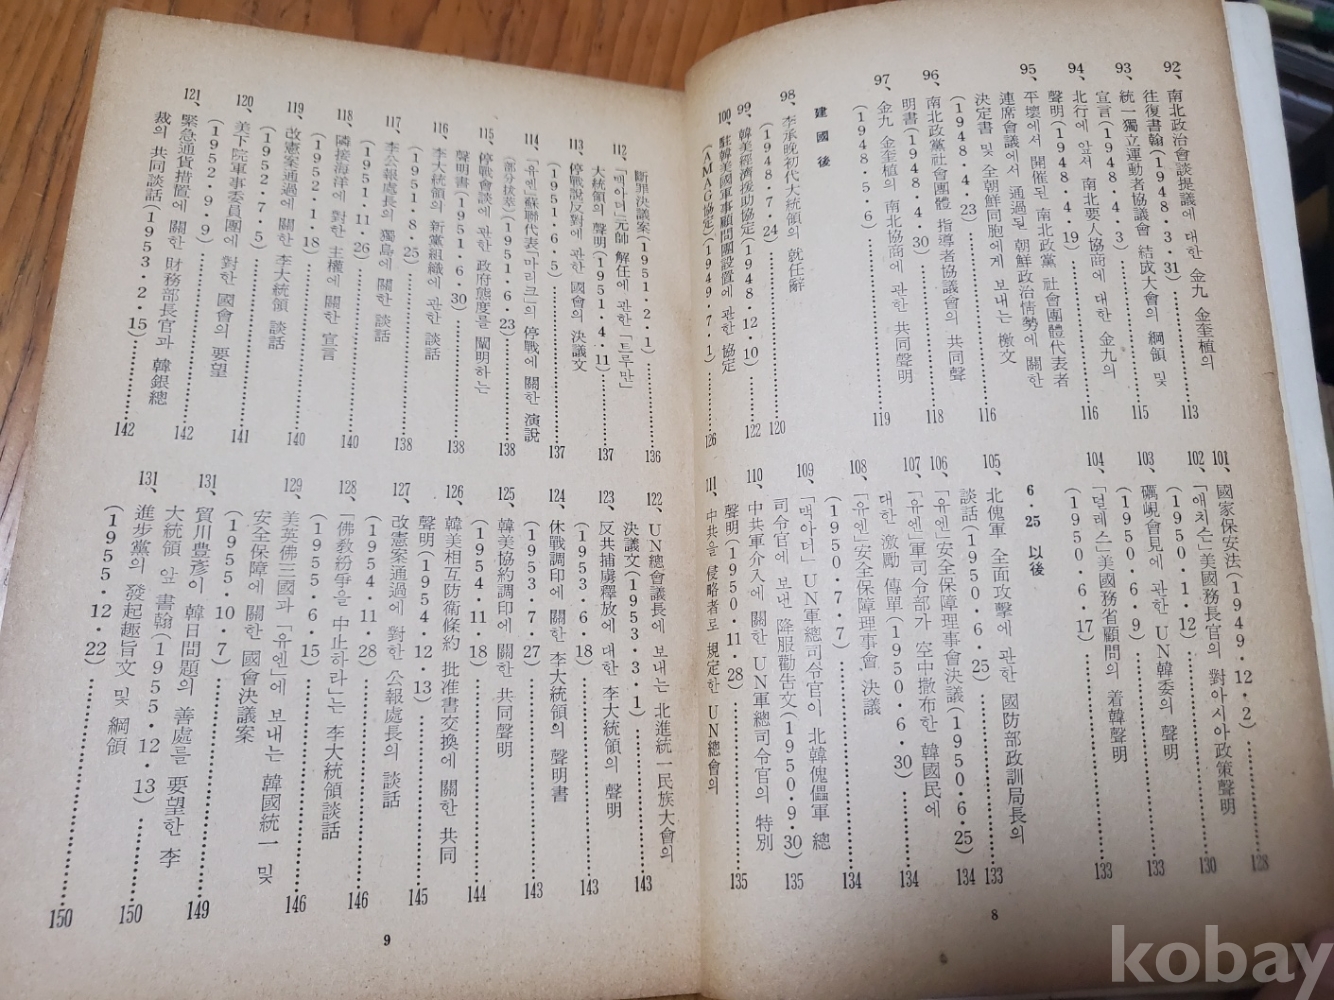 92、南北政治會談提議에 대한 金九 金奎植의
往復書翰(1948・3・31)…………113
93、統一獨立運動者協議會 結成大會의 綱領 및
宣言(1948・4・3)…………115
94、北行에 앞서 南北要人協商에 대한 金九의
聲明(1948・4・19)…………116
95、平壤에서 開催된 南北政黨 社會團體代表者
連席會議에서 通過된 朝鮮政治情勢에 關한
決定書 및 全朝鮮同胞에게 보내는 檄文
(1948・4・23)…………116
96、南北政黨社會團體 指導者協議會의 共同聲
明書(1948・4・30)…………118
97、金九 金奎植의 南北協商에 관한 共同聲明
(1948・5・6)…………119
建國後
98、李承晩初代大統領의 就任辭
(1948・7・24)…………120
99、韓美經濟援助協定(1948・12・10)…………122
100、駐韓美國軍事顧問團設置에 관한 協定
(AMAG協定)(1949・7・1)…………126
101、國家保安法(1949・12・2)…………128
102、「애치슨」美國務長官의 對아시아政策聲明
(1950・1・12)…………130
103、礪峴會見에 관한 UN韓委의 聲明
(1950・6・9)…………133
104、「덜레스」美國務省顧問의 着韓聲明
(1950・6・17)…………133
6・25 以後
105、北傀軍 全面攻擊에 관한 國防部政訓局長의
談話(1950・6・25)…………133
106、「유엔」安全保障理事會決議(1950・6・25)…………134
107、「유엔」軍司令部가 空中撒布한 韓國民에
대한 激勵 傳單(1950・6・30)…………134
108、「유엔」安全保障理事會 決議
(1950・7・7)…………134
109、「맥아더」UN軍總司令官이 北韓傀儡軍 總
司令官에 보낸 降服勸告文(1950・9・30)…………135
110、中共軍介入에 關한 UN軍總司令官의 特別
聲明(1950・11・28)…………135
111、中共을 侵略者로 規定한 UN總會의
8
斷罪決議案(1951・2・1)…………136
112、「맥아더」元帥 解任에 관한「트루만」
大統領의 聲明(1951・4・11)…………137
113、停戰說反對에 관한 國會의 決議文
(1951・6・5)…………137
114、「유엔」蘇聯代表「마리크」의 停戰에 關한 演說
(部分拔萃)(1951・6・23)…………138
115、停戰會談에 관한 政府態度를 闡明하는
聲明書(1951・6・30)…………138
116、李大統領의 新黨組織에 관한 談話
(1951・8・25)…………138
117、李公報處長의 獨島에 關한 談話
(1951・11・26)…………140
118、隣接海洋에 對한 主權에 關한 宣言
(1952・1・18)…………140
119、改憲案通過에 關한 李大統領 談話
(1952・7・5)…………141
120、美下院軍事委員團에 對한 國會의 要望
(1952・9・9)…………142
121、緊急通貨措置에 關한 財務部長官과 韓銀總
裁의 共同談話(1953・2・15)…………142
122、UN總會議長에 보내는 北進統一民族大會의
決議文(1953・3・1)…………143
123、反共捕虜釋放에 대한 李大統領의 聲明
(1953・6・18)…………143
124、休戰調印에 關한 李大統領의 聲明書
(1953・7・27)…………143
125、韓美協約調印에 關한 共同聲明
(1954・11・18)…………144
126、韓美相互防衛條約 批准書交換에 關한 共同
聲明(1954・12・13)…………145
127、改憲案通過에 對한 公報處長의 談話
(1954・11・28)…………146
128、「佛敎紛爭을 中止하라」는 李大統領談話
(1955・6・15)…………146
129、美英佛三國과「유엔」에 보내는 韓國統一 및
安全保障에 關한 國會決議案
(1955・10・7)…………149
131、賀川豊彦이 韓日問題의 善處를 要望한 李
大統領 앞 書翰(1955・12・13)…………150
131、進步黨의 發起趣旨文 및 綱領
(1955・12・22)…………150
9
kobay